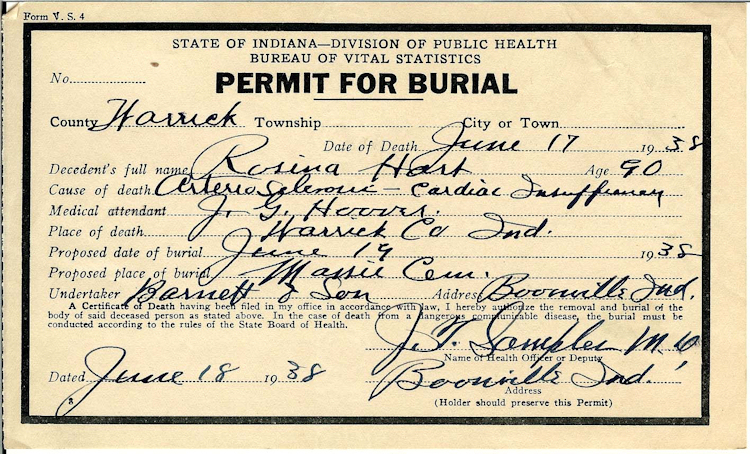 Form V. S. 4
STATE OF INDIANA—DIVISION OF PUBLIC HEALTH
BUREAU OF VITAL STATISTICS
No.
PERMIT FOR BURIAL
County Warrick Township City or Town
Date of Death June 17 1938
Decedent's full name Rosina Hart Age 90
Cause of death Arterio Sclerosis - Cardiac Insufficiency
Medical attendant J. G. Hoover.
Place of death Warrick Co Ind.
Proposed date of burial June 19 1938
Proposed place of burial Massie Cem.
Undertaker Barnett & Son Address Boonville Ind.
A Certificate of Death having been filed in my office in accordance with law, I hereby authorize the removal and burial of the
body of said deceased person as stated above. In the case of death from a dangerous communicable disease, the burial must be
conducted according to the rules of the State Board of Health.
J. T. Samples M D
Name of Health Officer or Deputy
Dated June 18 1938 Boonville Ind.
Address
(Holder should preserve this Permit)